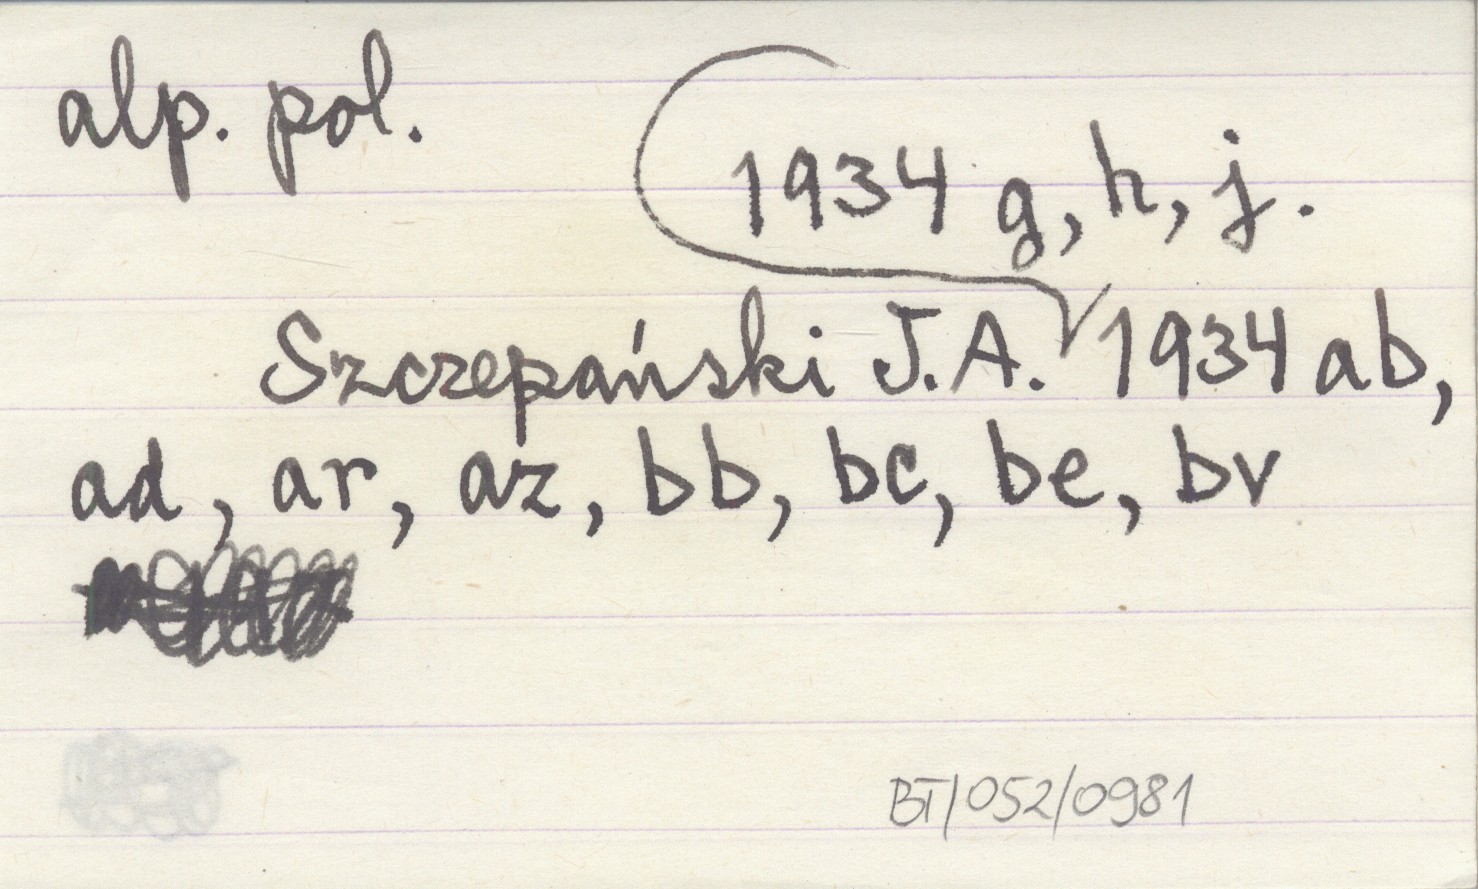 alp. pol.
1934 g, h, j.
Szczepański J.A. 1934 ab,
ad, ar, az, bb, bc, be, bv
BT/052/0981